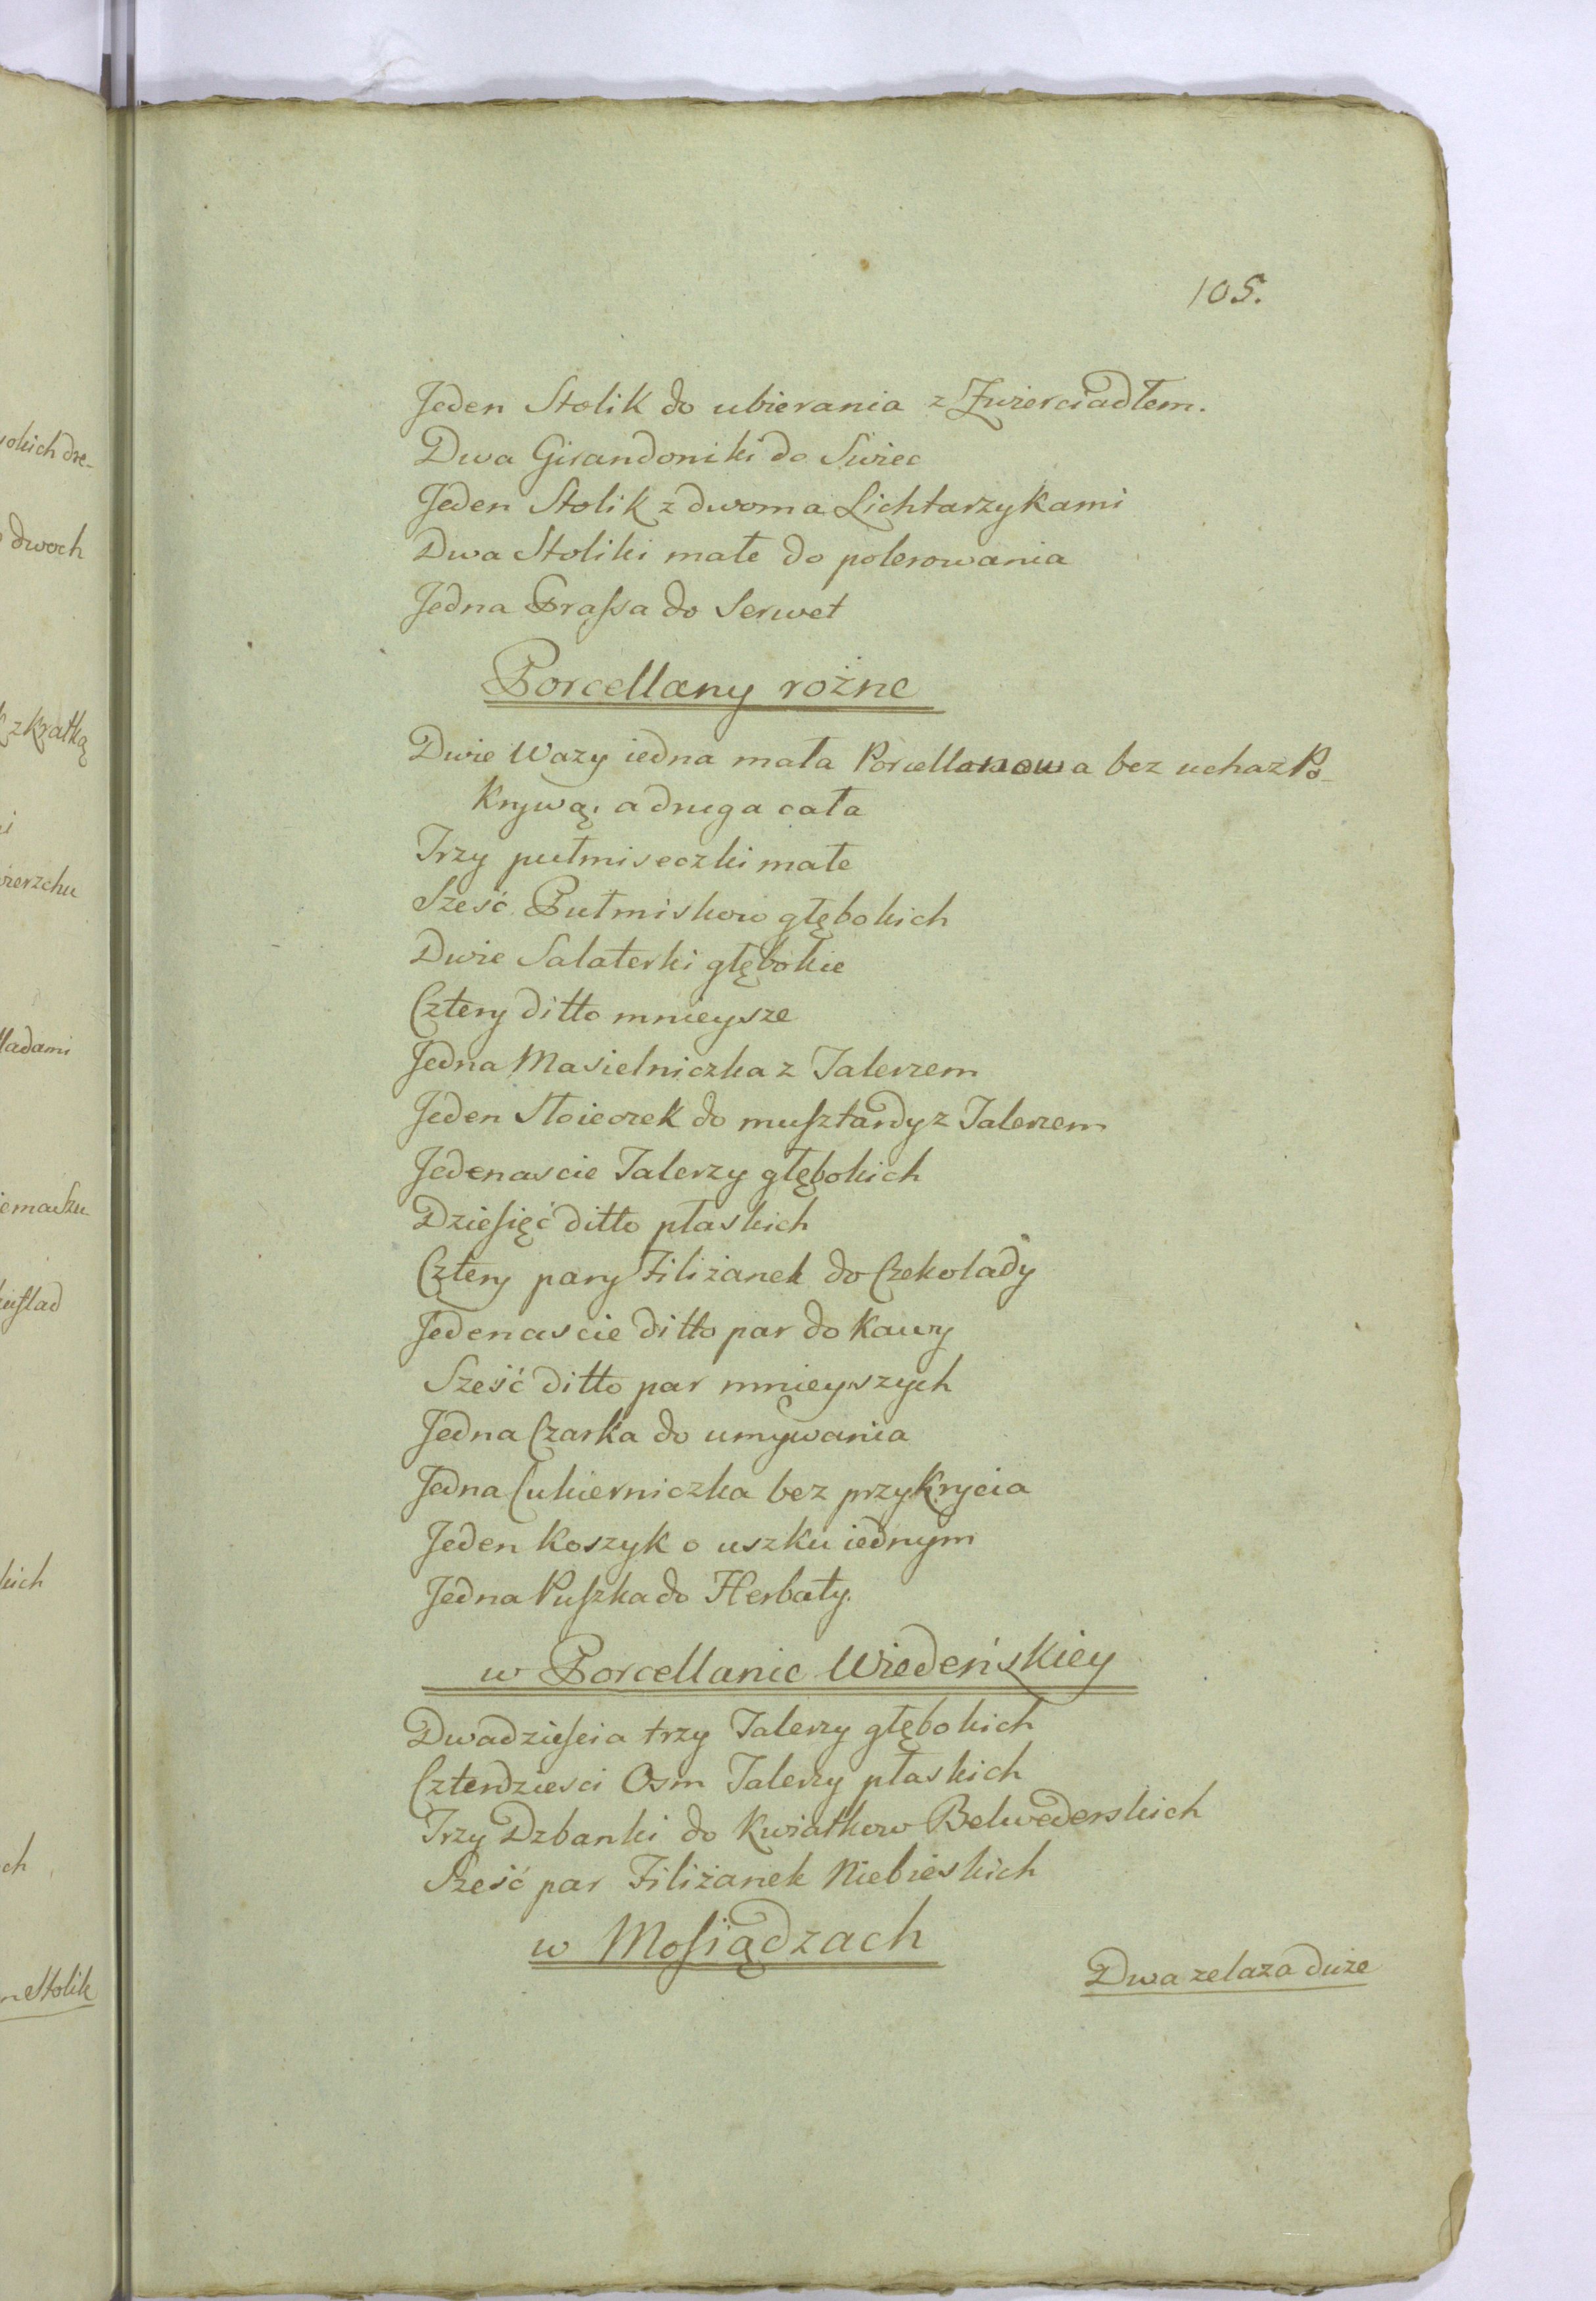 105.
Jeden Stolik do ubierania z Zwierciadłem.
Dwa Girandoniki do Swiec
Jeden Stolik z dwoma Lichtarzykami
Dwa Stoliki małe do polerowania
Jedna Prassa do Serwet
Porcellany rożne
Dwie Wazy iedna mała Porcellanowa bez ucha z Po-
krywą, a druga cała
Trzy pułmiseczki małe
Sześć Pułmiskow głębokich
Dwie Salaterki głębokie
Cztery ditto mnieysze
Jedna Masielniczka z Talerzem
Jeden Stoieczek do musztardy z Talerzem
Jedenascie Talerzy głębokich
Dziesięć ditto płaskich
Cztery pary Filiżanek do Czekolady
Jedenascie ditto par do Kawy
Sześć ditto par mnieyszych
Jedna Czarka do umywania
Jedna Cukierniczka bez przykrycia
Jeden Koszyk o uszku iednym
Jedna Puszka do Herbaty.
w Porcellanie Wiedeńskiey
Dwadziescia trzy Talerzy głębokich
Czterdziesci Osm Talerzy płaskich
Trzy Dzbanki do Kwiatkow Belwederskich
Sześć par Filiżanek Niebieskich
w Mosiądzach
Dwa zelaza duże
okich dre-
dwoch
z Kratką
wierzchu
ladami
kich
ch
n Stolik